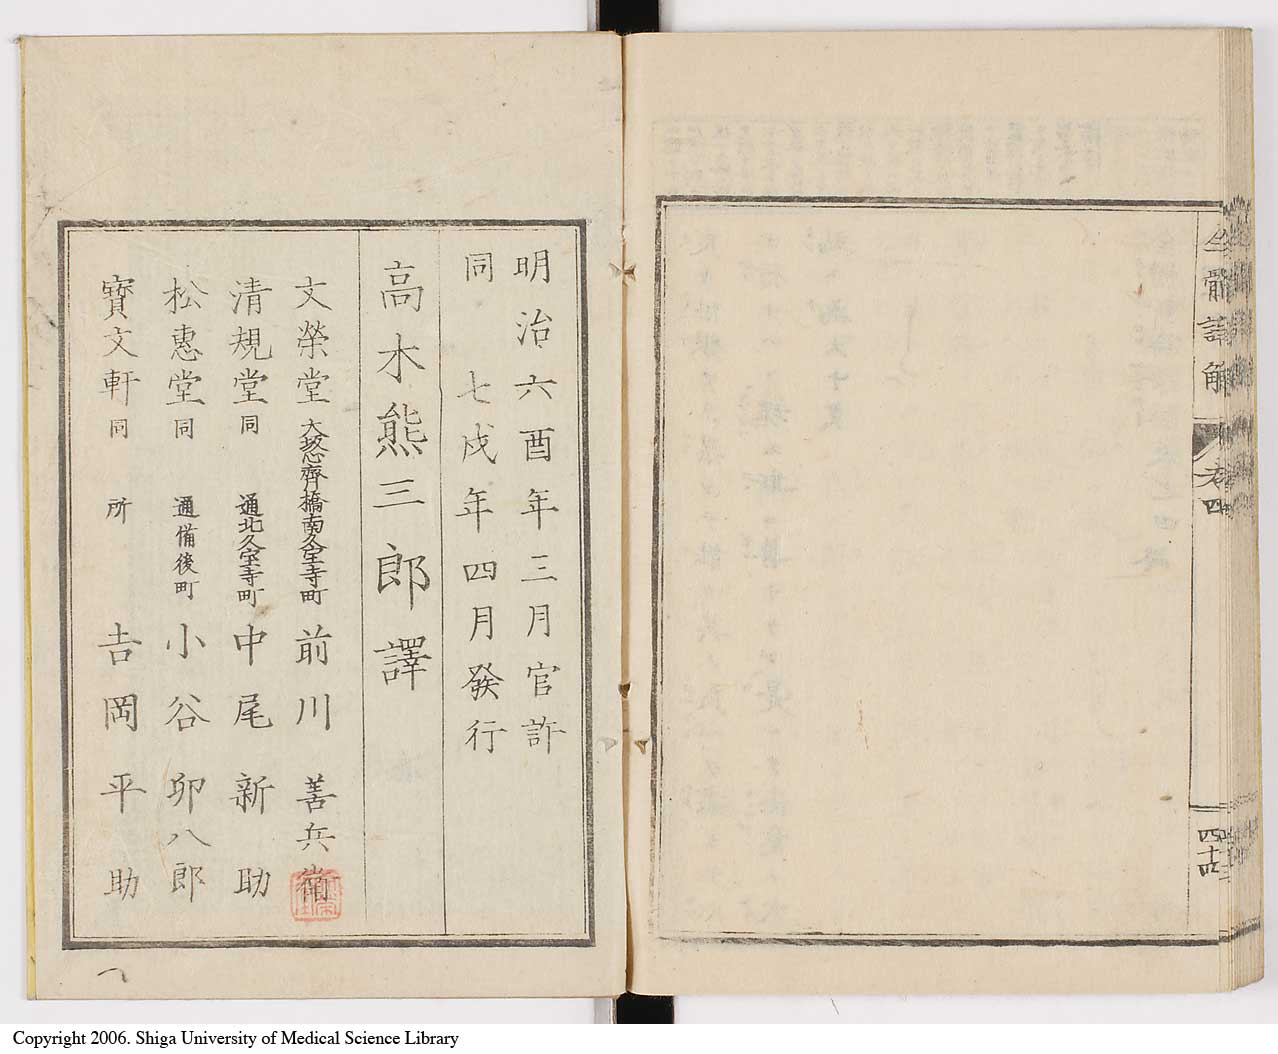 全體譯解
卷四
四十四
明治六酉年三月官許
同七戌年四月發行
高木熊三郎譯
文榮堂 大坂心齊橋南久宝寺町 前川善兵衛
清規堂 同 通北久宝寺町 中尾新助
松惠堂 同 通備後町 小谷卯八郎
寳文軒 同所 吉岡平助
Copyright 2006. Shiga University of Medical Science Library